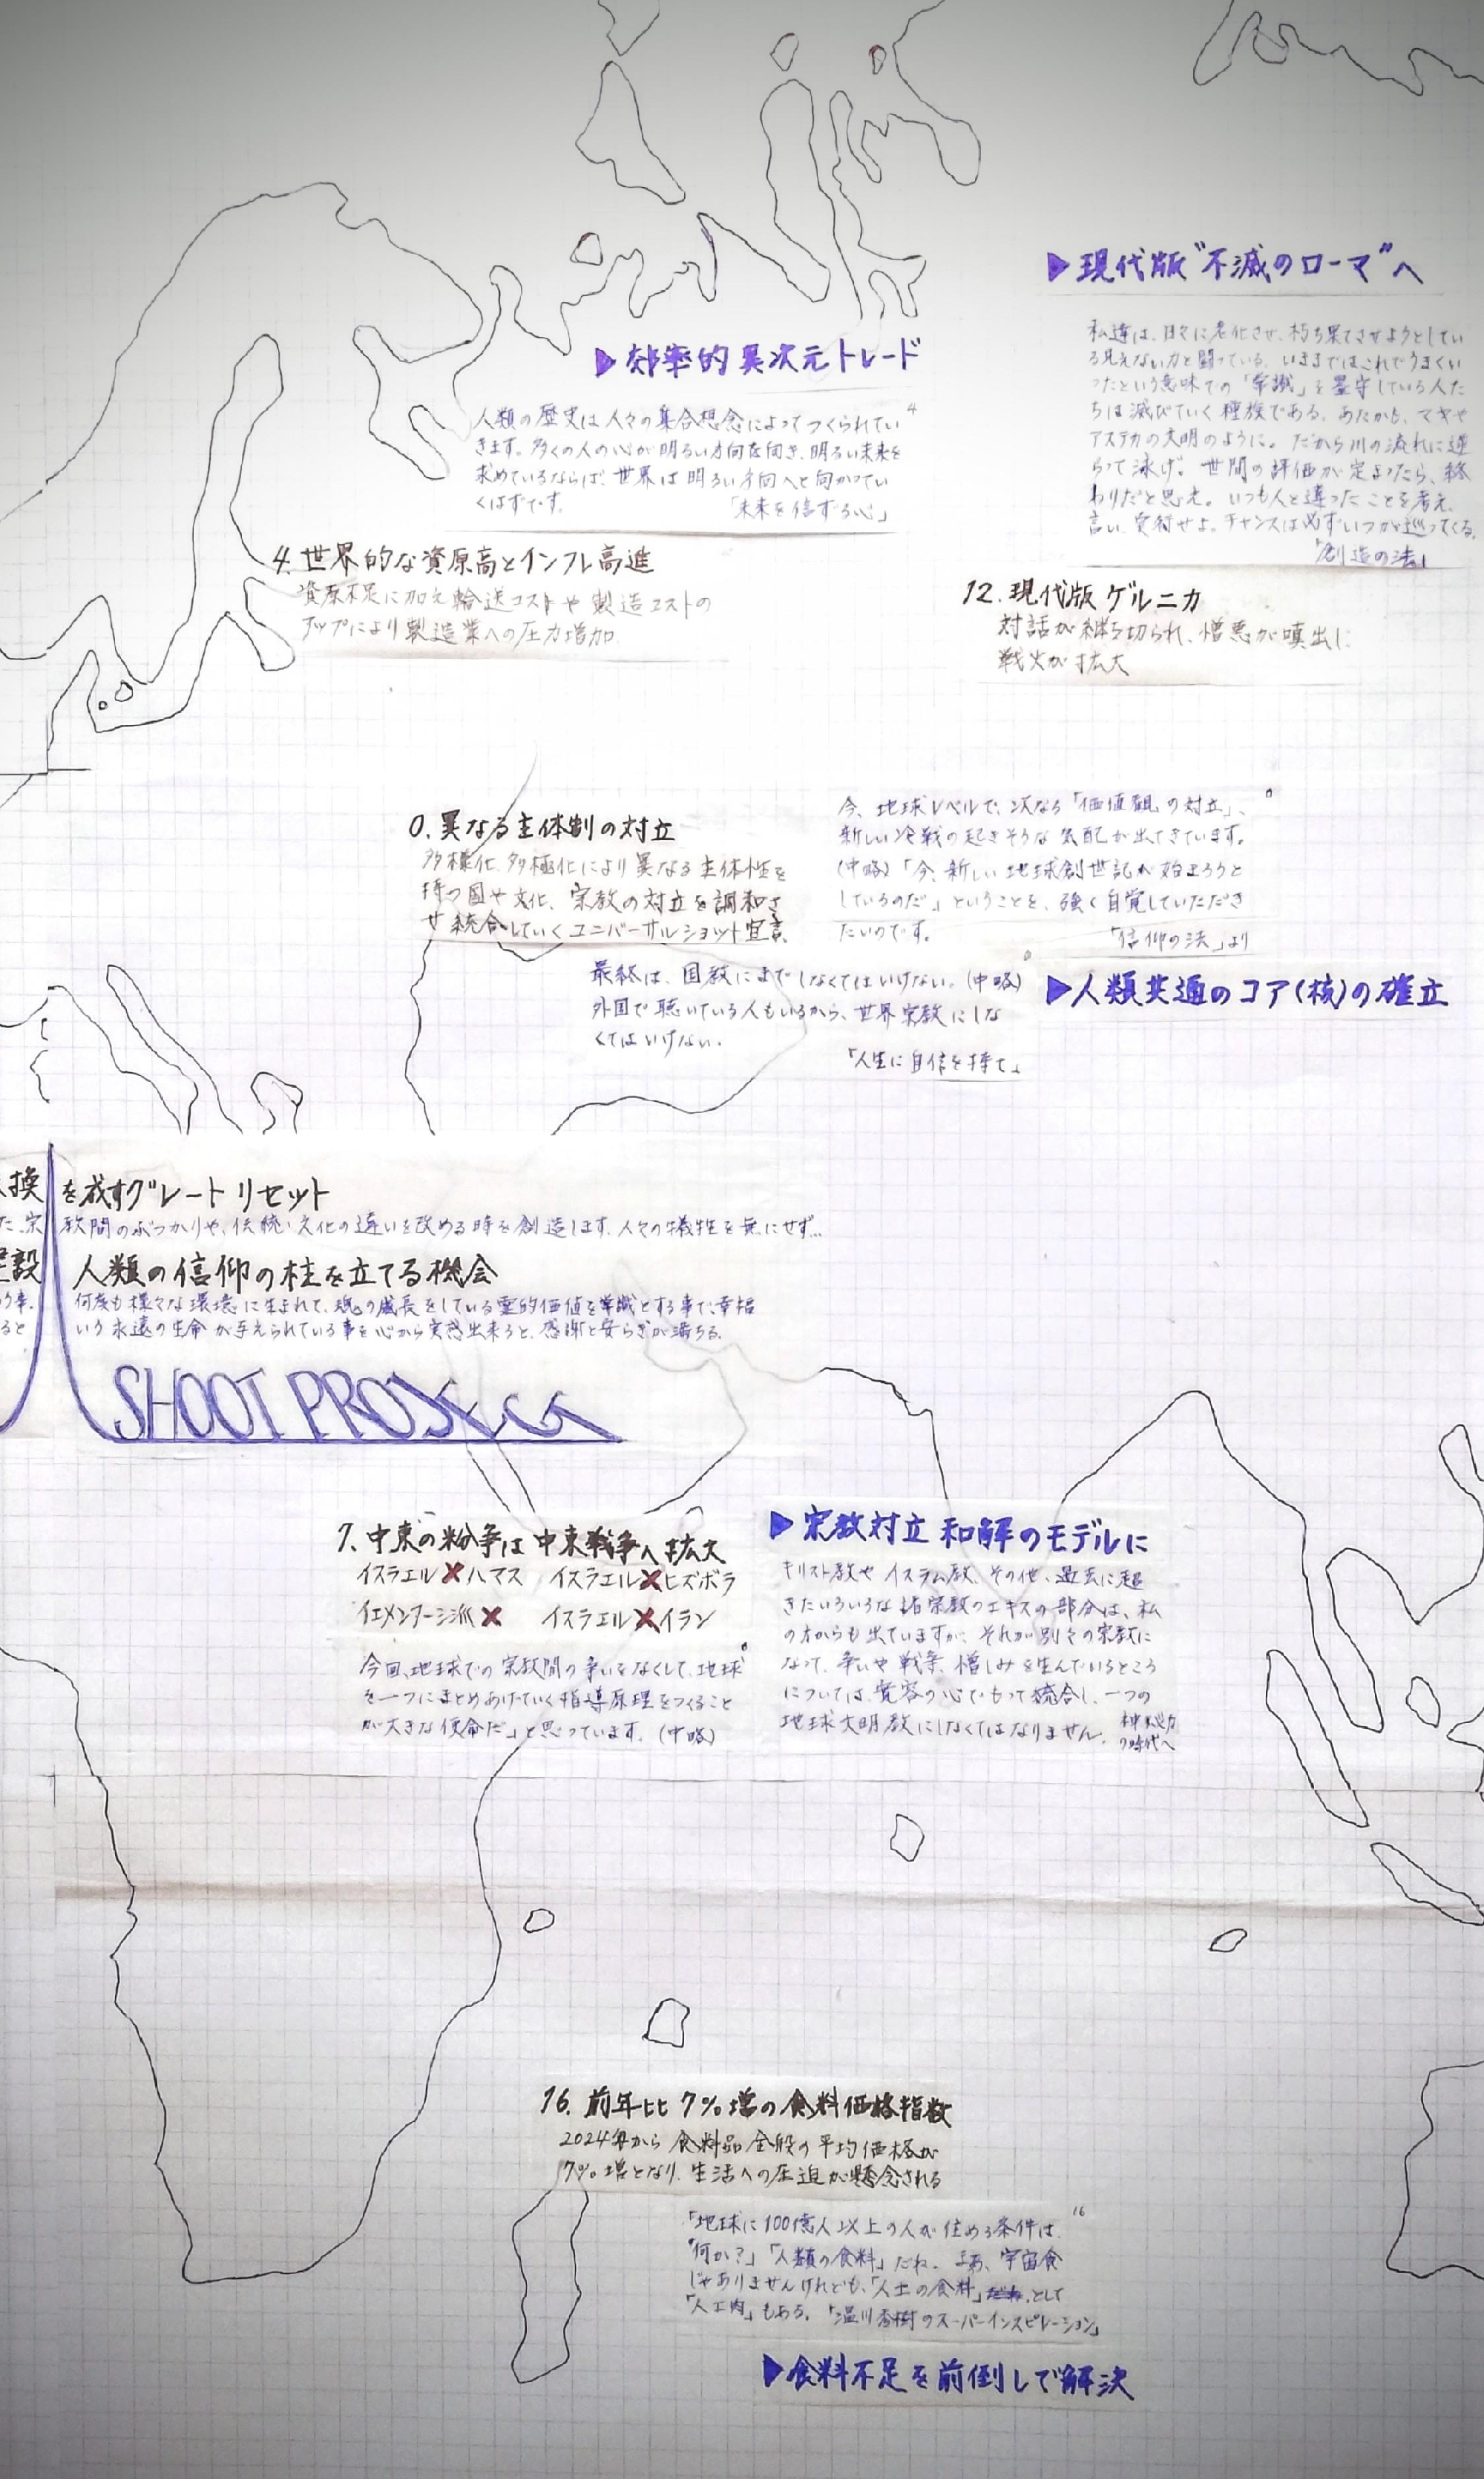 ▶現代版"不滅のローマ"へ
私達は、日々に老化させ、朽ち果てさせようとしてい
る見えない力と闘っている。いままではこれでうまくい
ったという意味での「常識」を墨守している人た
ちは滅びていく種族である。あたかも、マヤや
アステカの文明のように。だから川の流れに逆
らって泳げ。世間の評価が定まったら、終
わりだと思え。いつも人と違ったことを考え、
言い、実行せよ。チャンスは必ずいつか巡ってくる。
「創造の法」
▶効率的異次元トレード
人類の歴史は人々の集合想念によってつくられてい 4
きます。多くの人の心が明るい方向を向き、明るい未来を
求めているならば、世界は明るい方向へと向かってい
くはずです。 「未来を信ずる心」
4. 世界的な資原高とインフレ高進
資原不足に加え輸送コストや製造コストの
アップにより製造業への圧力増加
12. 現代版ゲルニカ
対話が断ち切られ、憎悪が噴出し
戦火が拡大
0. 異なる主体制の対立
多様化、多極化により異なる主体性を
持つ国や文化、宗教の対立を調和さ
せ統合していくユニバーサルショット宣言
今、地球レベルで、次なる「価値観の対立」、 0
新しい冷戦の起きそうな気配が出てきています。
(中略)「今、新しい地球創世記が始まろうと
しているのだ」ということを、強く自覚していただき
たいのです。 「信仰の法」より
最終は、国教にまでしなくてはいけない。(中略) 0
外国で聴いている人もいるから、世界宗教にしな
くてはいけない。
「人生に自信を持て」
▶人類共通のコア(核)の確立
換を成すグレートリセット
た、宗教間のぶつかりや、伝統・文化の違いを改める時を創造します。人々の犠牲を無にせず...
建設 人類の信仰の柱を立てる機会
何度も様々な環境に生まれて、魂の成長をしている霊的価値を常識とする事で、幸福
ると いう永遠の生命が与えられている事を心から実感出来ると、感謝と安らぎが満ちる。
SHOOT PROJECT
7. 中東の紛争は中東戦争へ拡大
イスラエル×ハマス イスラエル×ヒズボラ
イエメンフーシ派× イスラエル×イラン
今回、地球での宗教間の争いをなくして、地球
を一つにまとめあげていく指導原理をつくること
が大きな使命だ」と思っています。(中略)
▶宗教対立 和解のモデルに
キリスト教やイスラム教、その他、過去に起
きたいろいろな諸宗教のエキスの部分は、私
の方からも出ていますが、それが別々の宗教に
なって、争いや戦争、憎しみを生んでいるところ
については、寛容の心でもって統合し、一つの
地球文明教にしなくてはなりません。
の時代へ
16. 前年比7%増の食料価格指数
2024年から食料品全般の平均価格が
7%増となり、生活への圧迫が懸念される
「地球に100億人以上の人が住める条件は 16
何か?」「人類の食料」だね。まあ、宇宙食
じゃありませんけれども、「人工の食料」として
「人工肉」もある。「湯川秀樹のスーパーインスピレーション」
▶食料不足を前倒しで解決